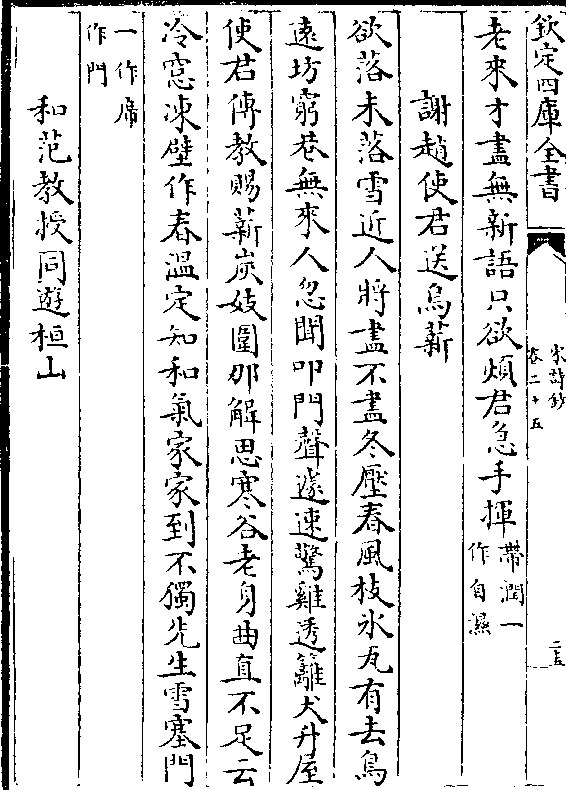 欽定四庫全書
宋詩鈔
卷二十五
二五
老來才盡無新語只欲煩君急手揮帶潤一
作自濕
謝趙使君送烏薪
欲落未落雪近人將盡不盡冬壓春風枝氷瓦有去鳥
遠坊窮巷無來人忽聞叩門聲遽速驚雞透籬犬升屋
使君傳教賜薪炭妓圍那解思寒谷老身曲直不足云
冷窓凍壁作春溫定知和氣家家到不獨先生雪塞門
一作席
作門
和范教授同遊桓山